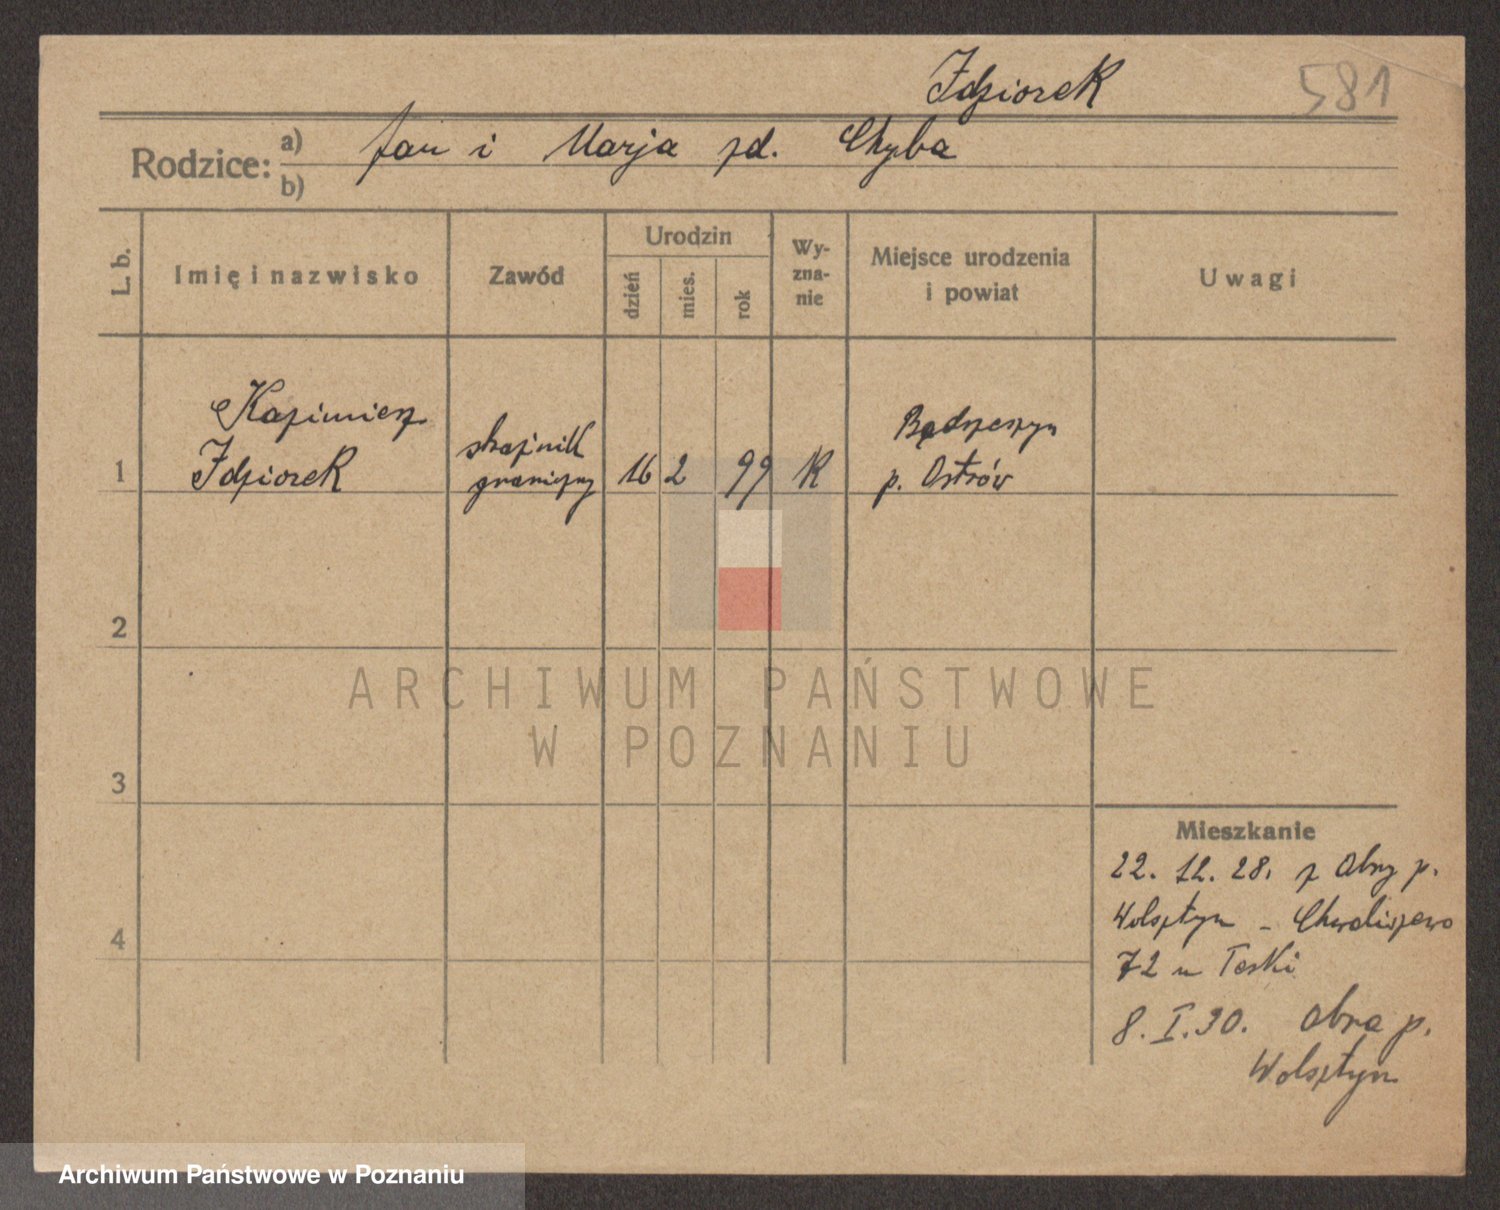 Idziorek 581
Rodzice: a) Jan i Marja zd. Chyba
b)
L. b. Imię i nazwisko Zawód Urodzin dzień mies. rok Wy-zna-nie Miejsce urodzenia i powiat Uwagi
1 Kazimierz Idziorek strażnik graniczny 16 2 99 K Będzieszyn p. Ostrów
2
3
4
Mieszkanie
22. 12. 28. z Obry p.
Wolsztyn - Chwaliszewo
72 u Teski
8. I. 30. Obra p.
Wolsztyn
ARCHIWUM PAŃSTWOWE
W POZNANIU
Archiwum Państwowe w Poznaniu